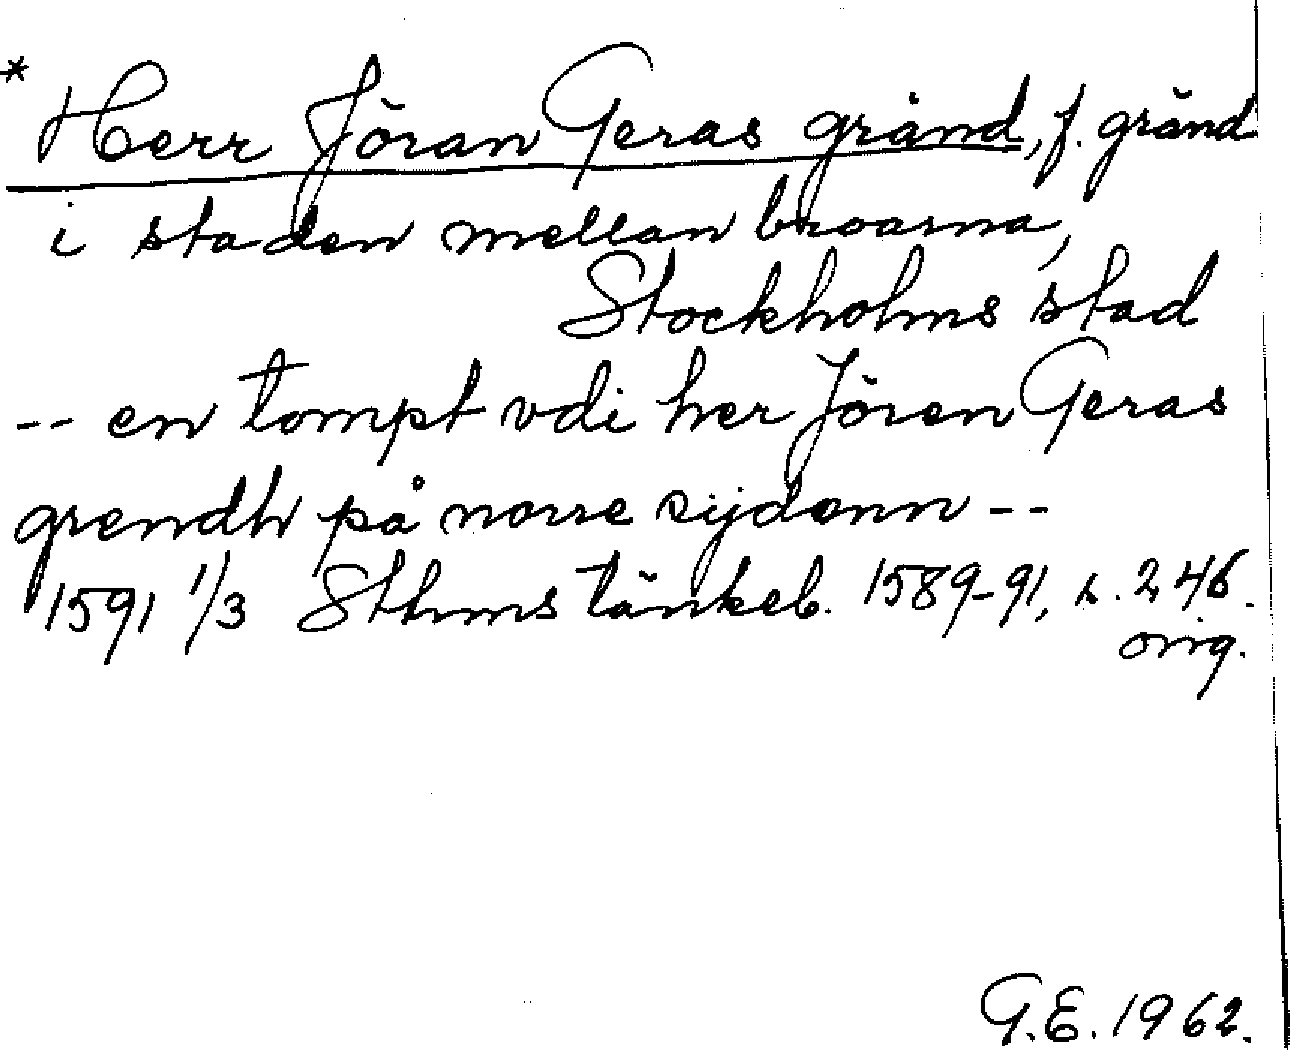 * Herr Jöran Geras gränd, f. gränd
i staden mellan broarna,
Stockholms stad
-- en tompt vdi her Jören Geras
grendh på norre sijdonn --
1591 1/3 Sthms tänkeb. 1589-91, s. 246.
orig.
G.E. 1962.